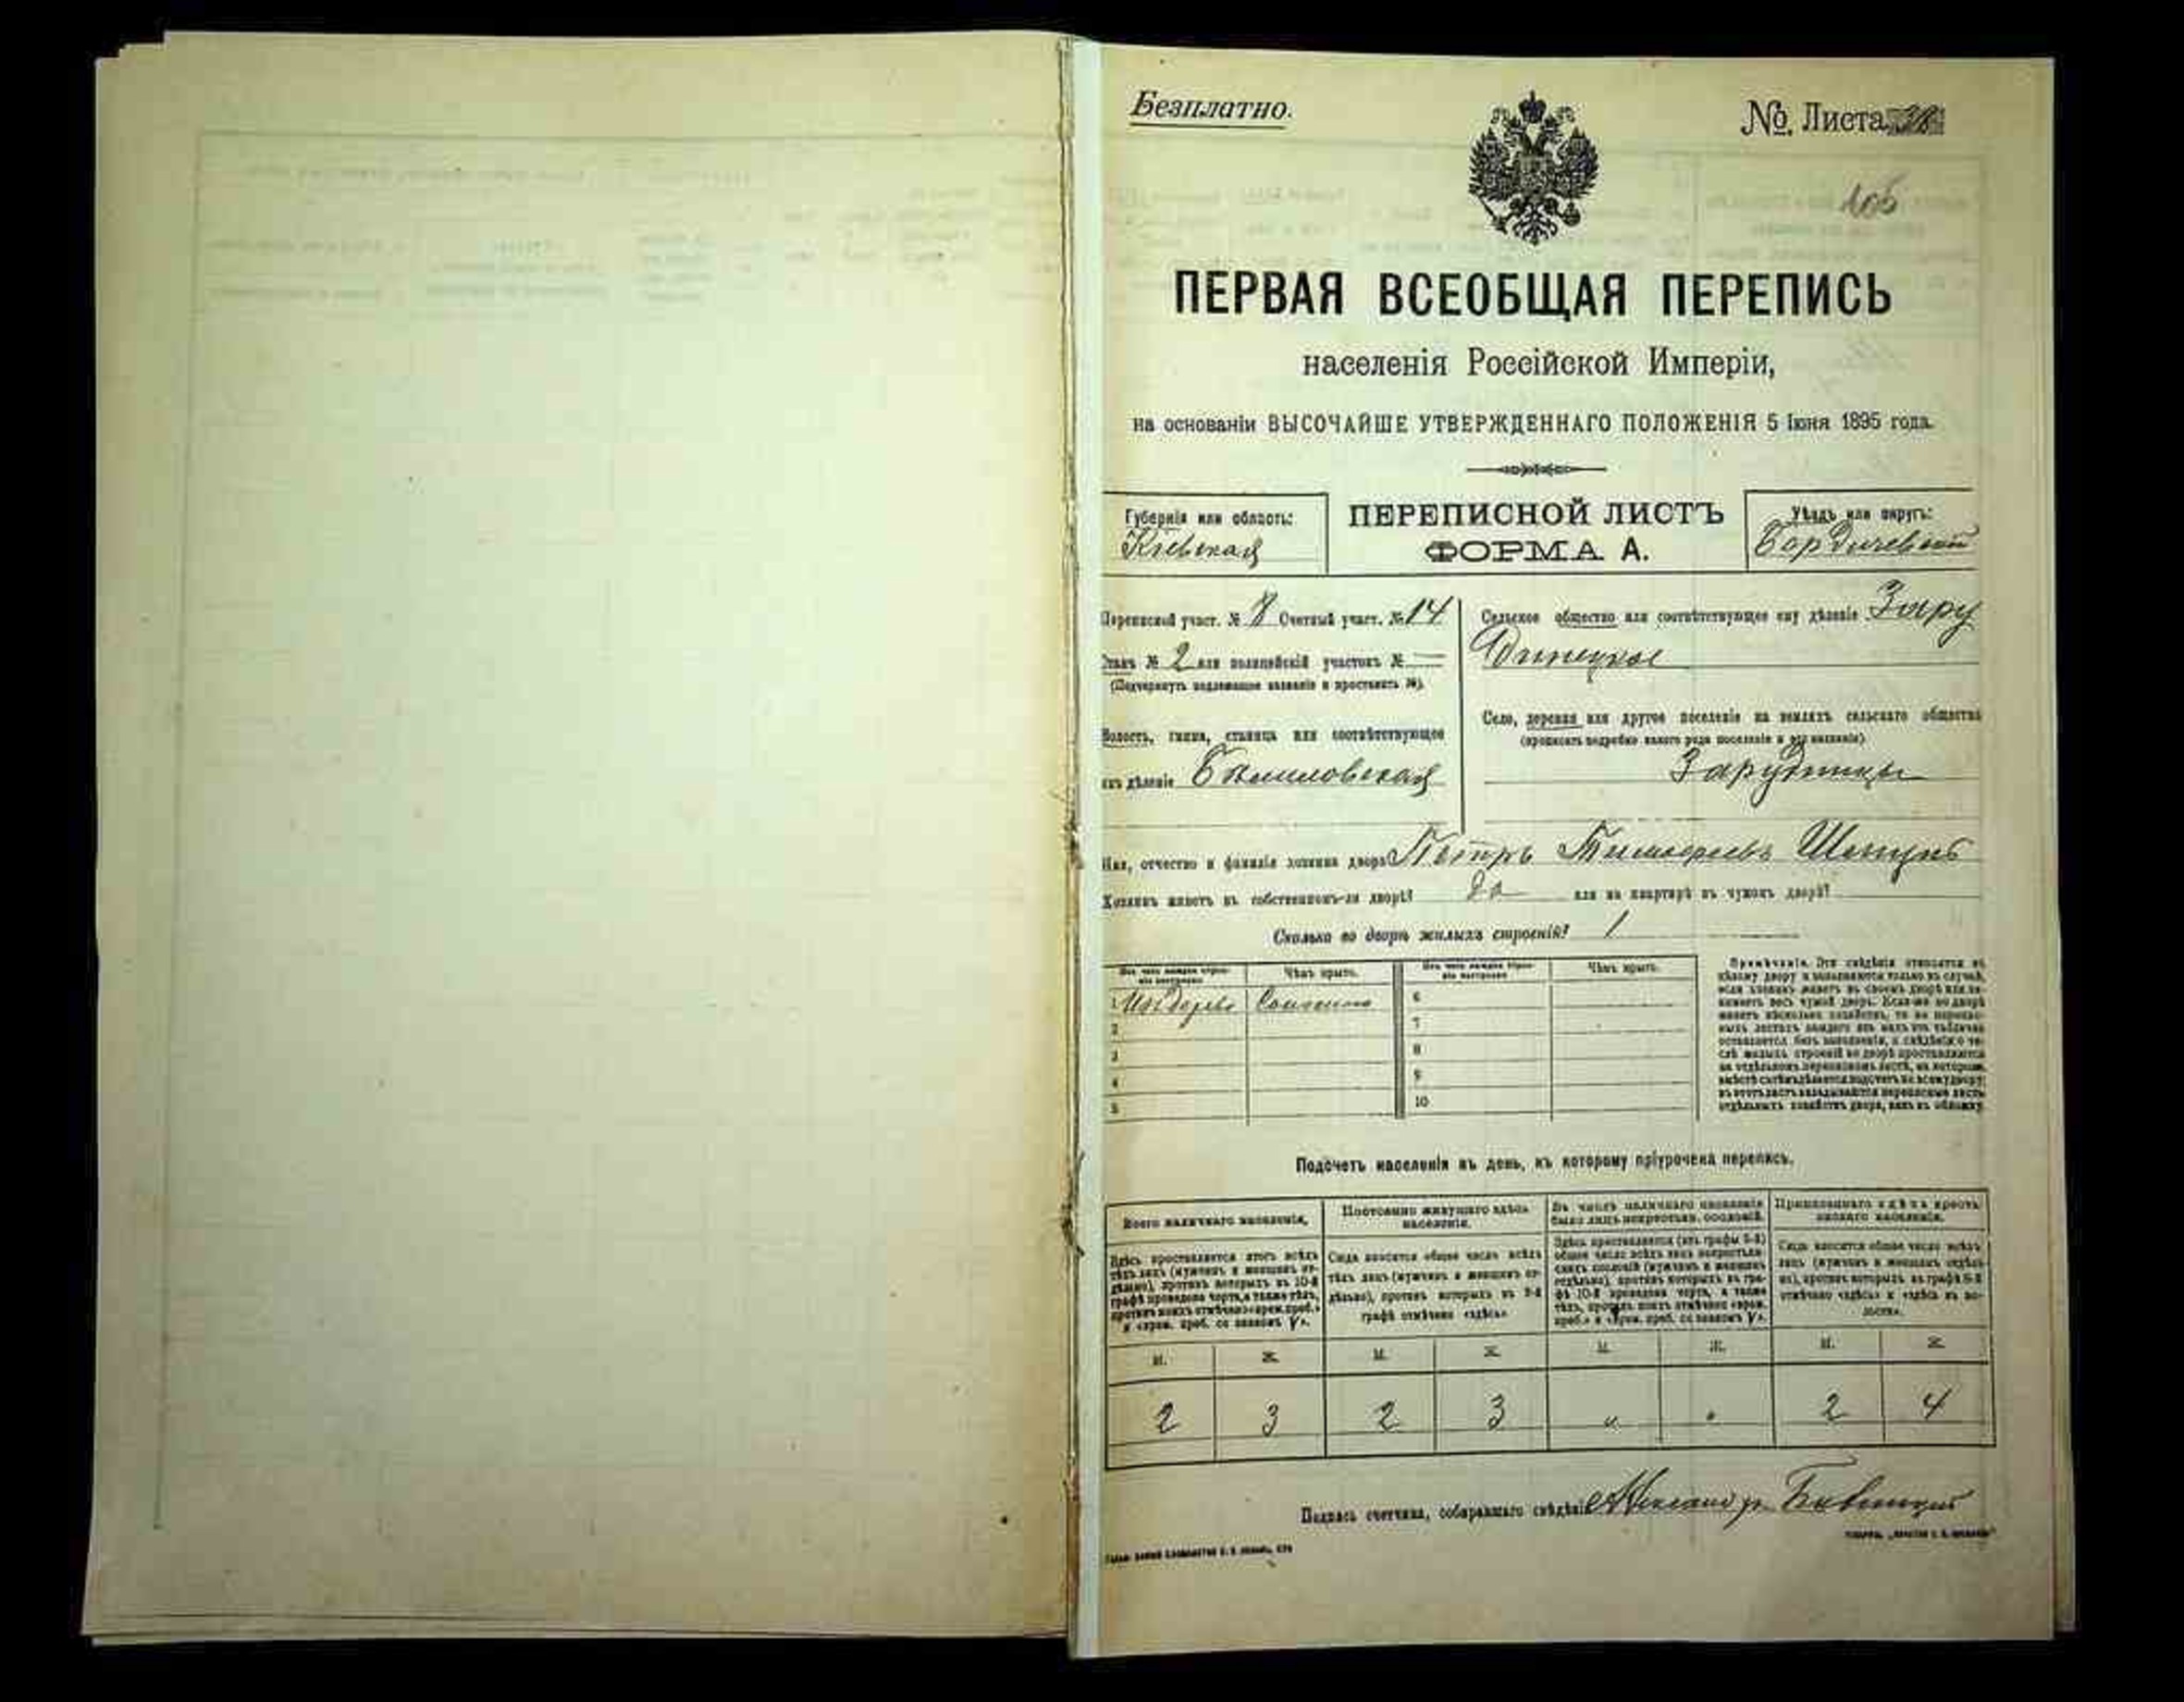 Безплатно.
№. Листа
105
ПЕРВАЯ ВСЕОБЩАЯ ПЕРЕПИСЬ
населенія Россійской Имперіи,
на основаніи ВЫСОЧАЙШЕ УТВЕРЖДЕННАГО ПОЛОЖЕНІЯ 5 Іюня 1895 года.
Губернія или область:
Кіевская
ПЕРЕПИСНОЙ ЛИСТЪ
ФОРМА А.
Уѣздъ или округъ:
Бердичевскій
Переписной участ. № 8 Счетный участ. № 14
Станъ № 2 или полицейскій участокъ № —
(Подчеркнуть подлежащее названіе и проставить №).
Волость, гмина, станица или соотвѣтствующее
имъ дѣленіе
Сельское общество или соотвѣтствующее ему дѣленіе Зару
динецкое
Село, деревня или другое поселеніе на земляхъ сельскаго общества
(прописать подробно какого рода поселеніе и его названіе)
Зарудинцы
Имя, отчество и фамилія хозяина двора Петръ Тимофеевъ
Хозяинъ живетъ въ собственномъ-ли дворѣ? да или на квартирѣ въ чужомъ дворѣ?
Сколько во дворѣ жилыхъ строеній? 1
Изъ чего каждое строеніе построено Чѣмъ крыто. Изъ чего каждое строеніе построено Чѣмъ крыто.
1 Изъ дерева Соломою 6
2 7
3 8
4 9
5 10
Примѣчаніе. Эти свѣдѣнія относятся къ
цѣлому двору и заполняются только въ случаѣ,
если хозяинъ живетъ въ своемъ дворѣ или за-
нимаетъ весь чужой дворъ. Если-же во дворѣ
живетъ нѣсколько хозяйствъ, то на перепис-
ныхъ листахъ каждаго изъ нихъ эта табличка
оставляется безъ заполненія, а свѣдѣнія о чи-
слѣ жилыхъ строеній во дворѣ проставляются
на отдѣльномъ переписномъ листѣ, на которомъ
вмѣстѣ съ тѣмъ дѣлается подсчетъ по всему двору;
въ этотъ листъ вкладываются переписные листы
отдѣльныхъ хозяйствъ двора, какъ въ обложку.
Подсчетъ населенія въ день, къ которому пріурочена перепись.
Всего наличнаго населенія.
Здѣсь проставляется итогъ всѣхъ
тѣхъ лицъ (мужчинъ и женщинъ от-
дѣльно), противъ которыхъ въ 10-й
графѣ проведена черта, а также тѣхъ,
противъ коихъ отмѣчено «врем. преб.»
и «врем. преб. со знакомъ V».
Постоянно живущаго здѣсь
населенія.
Сюда вносится общее число всѣхъ
тѣхъ лицъ (мужчинъ и женщинъ от-
дѣльно), противъ которыхъ въ 9-й
графѣ отмѣчено «здѣсь»
Въ числѣ наличнаго населенія
было лицъ некрестьян. сословій.
Здѣсь проставляется (изъ графы 5-й)
общее число всѣхъ лицъ некрестьян-
скихъ сословій (мужчинъ и женщинъ
отдѣльно), противъ которыхъ въ гра-
фѣ 10-й проведена черта, а также
тѣхъ, противъ коихъ отмѣчено «врем.
преб.» и «врем. преб. со знакомъ V».
Приписаннаго здѣсь кресть-
янскаго населенія.
Сюда вносится общее число всѣхъ
лицъ (мужчинъ и женщинъ отдѣль-
но), противъ которыхъ въ графѣ 8-й
отмѣчено «здѣсь» и «здѣсь въ во-
лости».
М. Ж. М. Ж. М. Ж. М. Ж.
2 3 2 3 „ „ 2 4
Подпись счетчика, собиравшаго свѣдѣнія Александръ